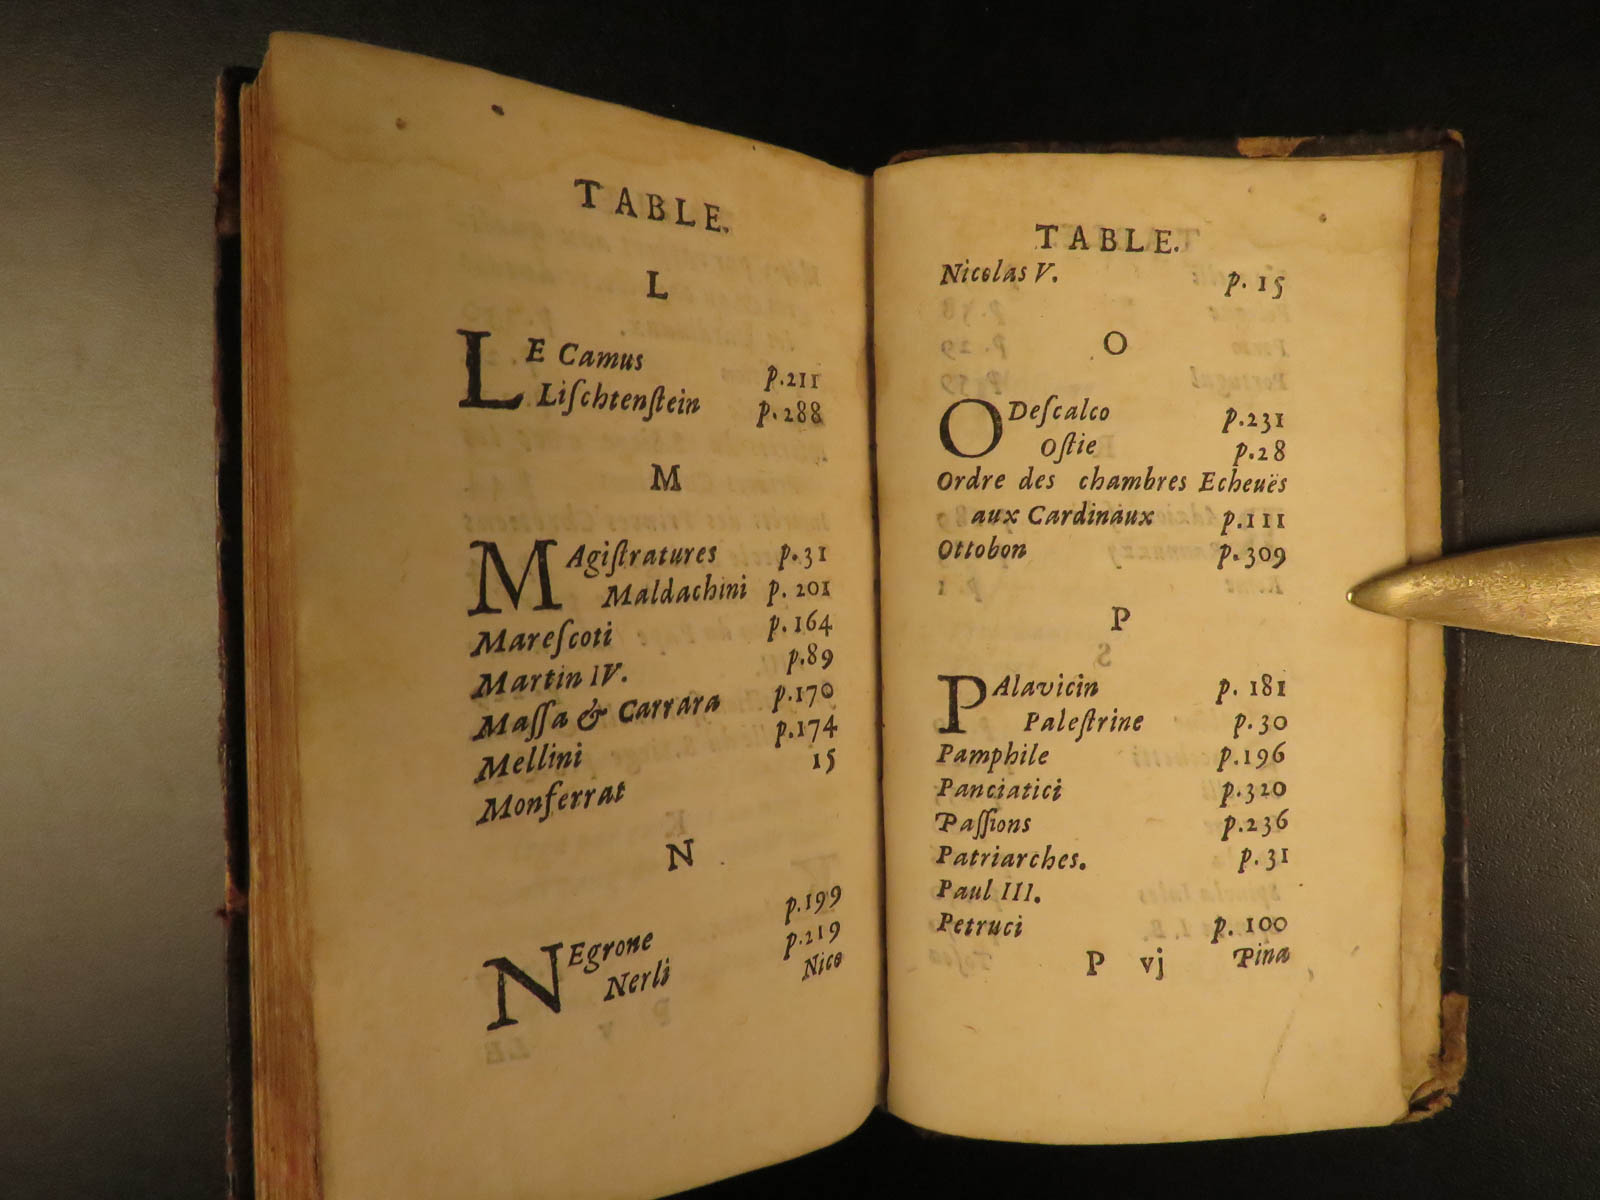 TABLE.
L
LE Camus p.211
Liſchtenſtein p.288
M
MAgiſtratures p.31
Maldachini p. 201
Mareſcoti p.164
Martin IV. p.89
Maſſa & Carrara p.170
Mellini p.174
Monferrat 15
N
NEgrone p.199
Nerli p.219
Nico
TABLE.
Nicolas V. p. 15
O
ODeſcalco p.231
Oſtie p.28
Ordre des chambres Echeuës
aux Cardinaux p.111
Ottobon p.309
P
PAlavicin p. 181
Paleſtrine p.30
Pamphile p.196
Panciatici p.320
Paſſions p.236
Patriarches. p.31
Paul III.
Petruci p. 100
P vj Pina